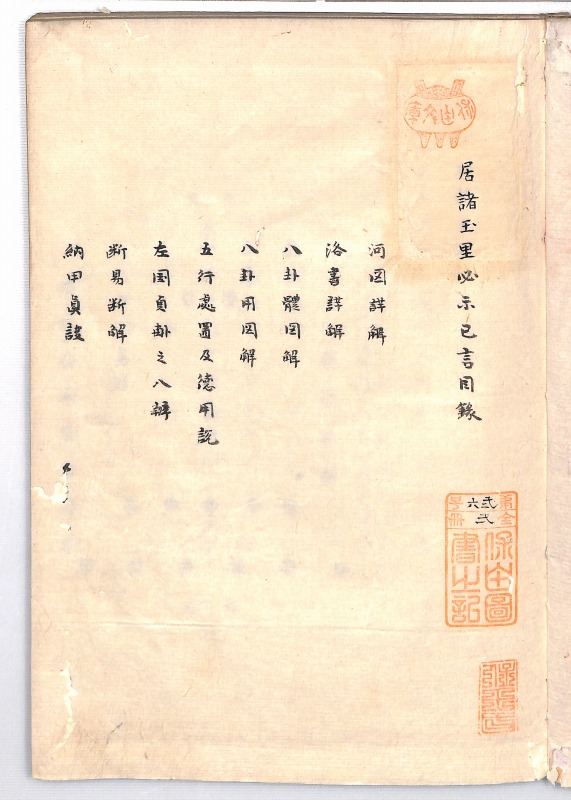 居諸玉里必示已言目錄
河図詳解
洛書詳解
八卦體図解
八卦用図解
五行處置及德用説
左国貞卦之八辨
断易断解
納甲眞諺
保古圖
書之記